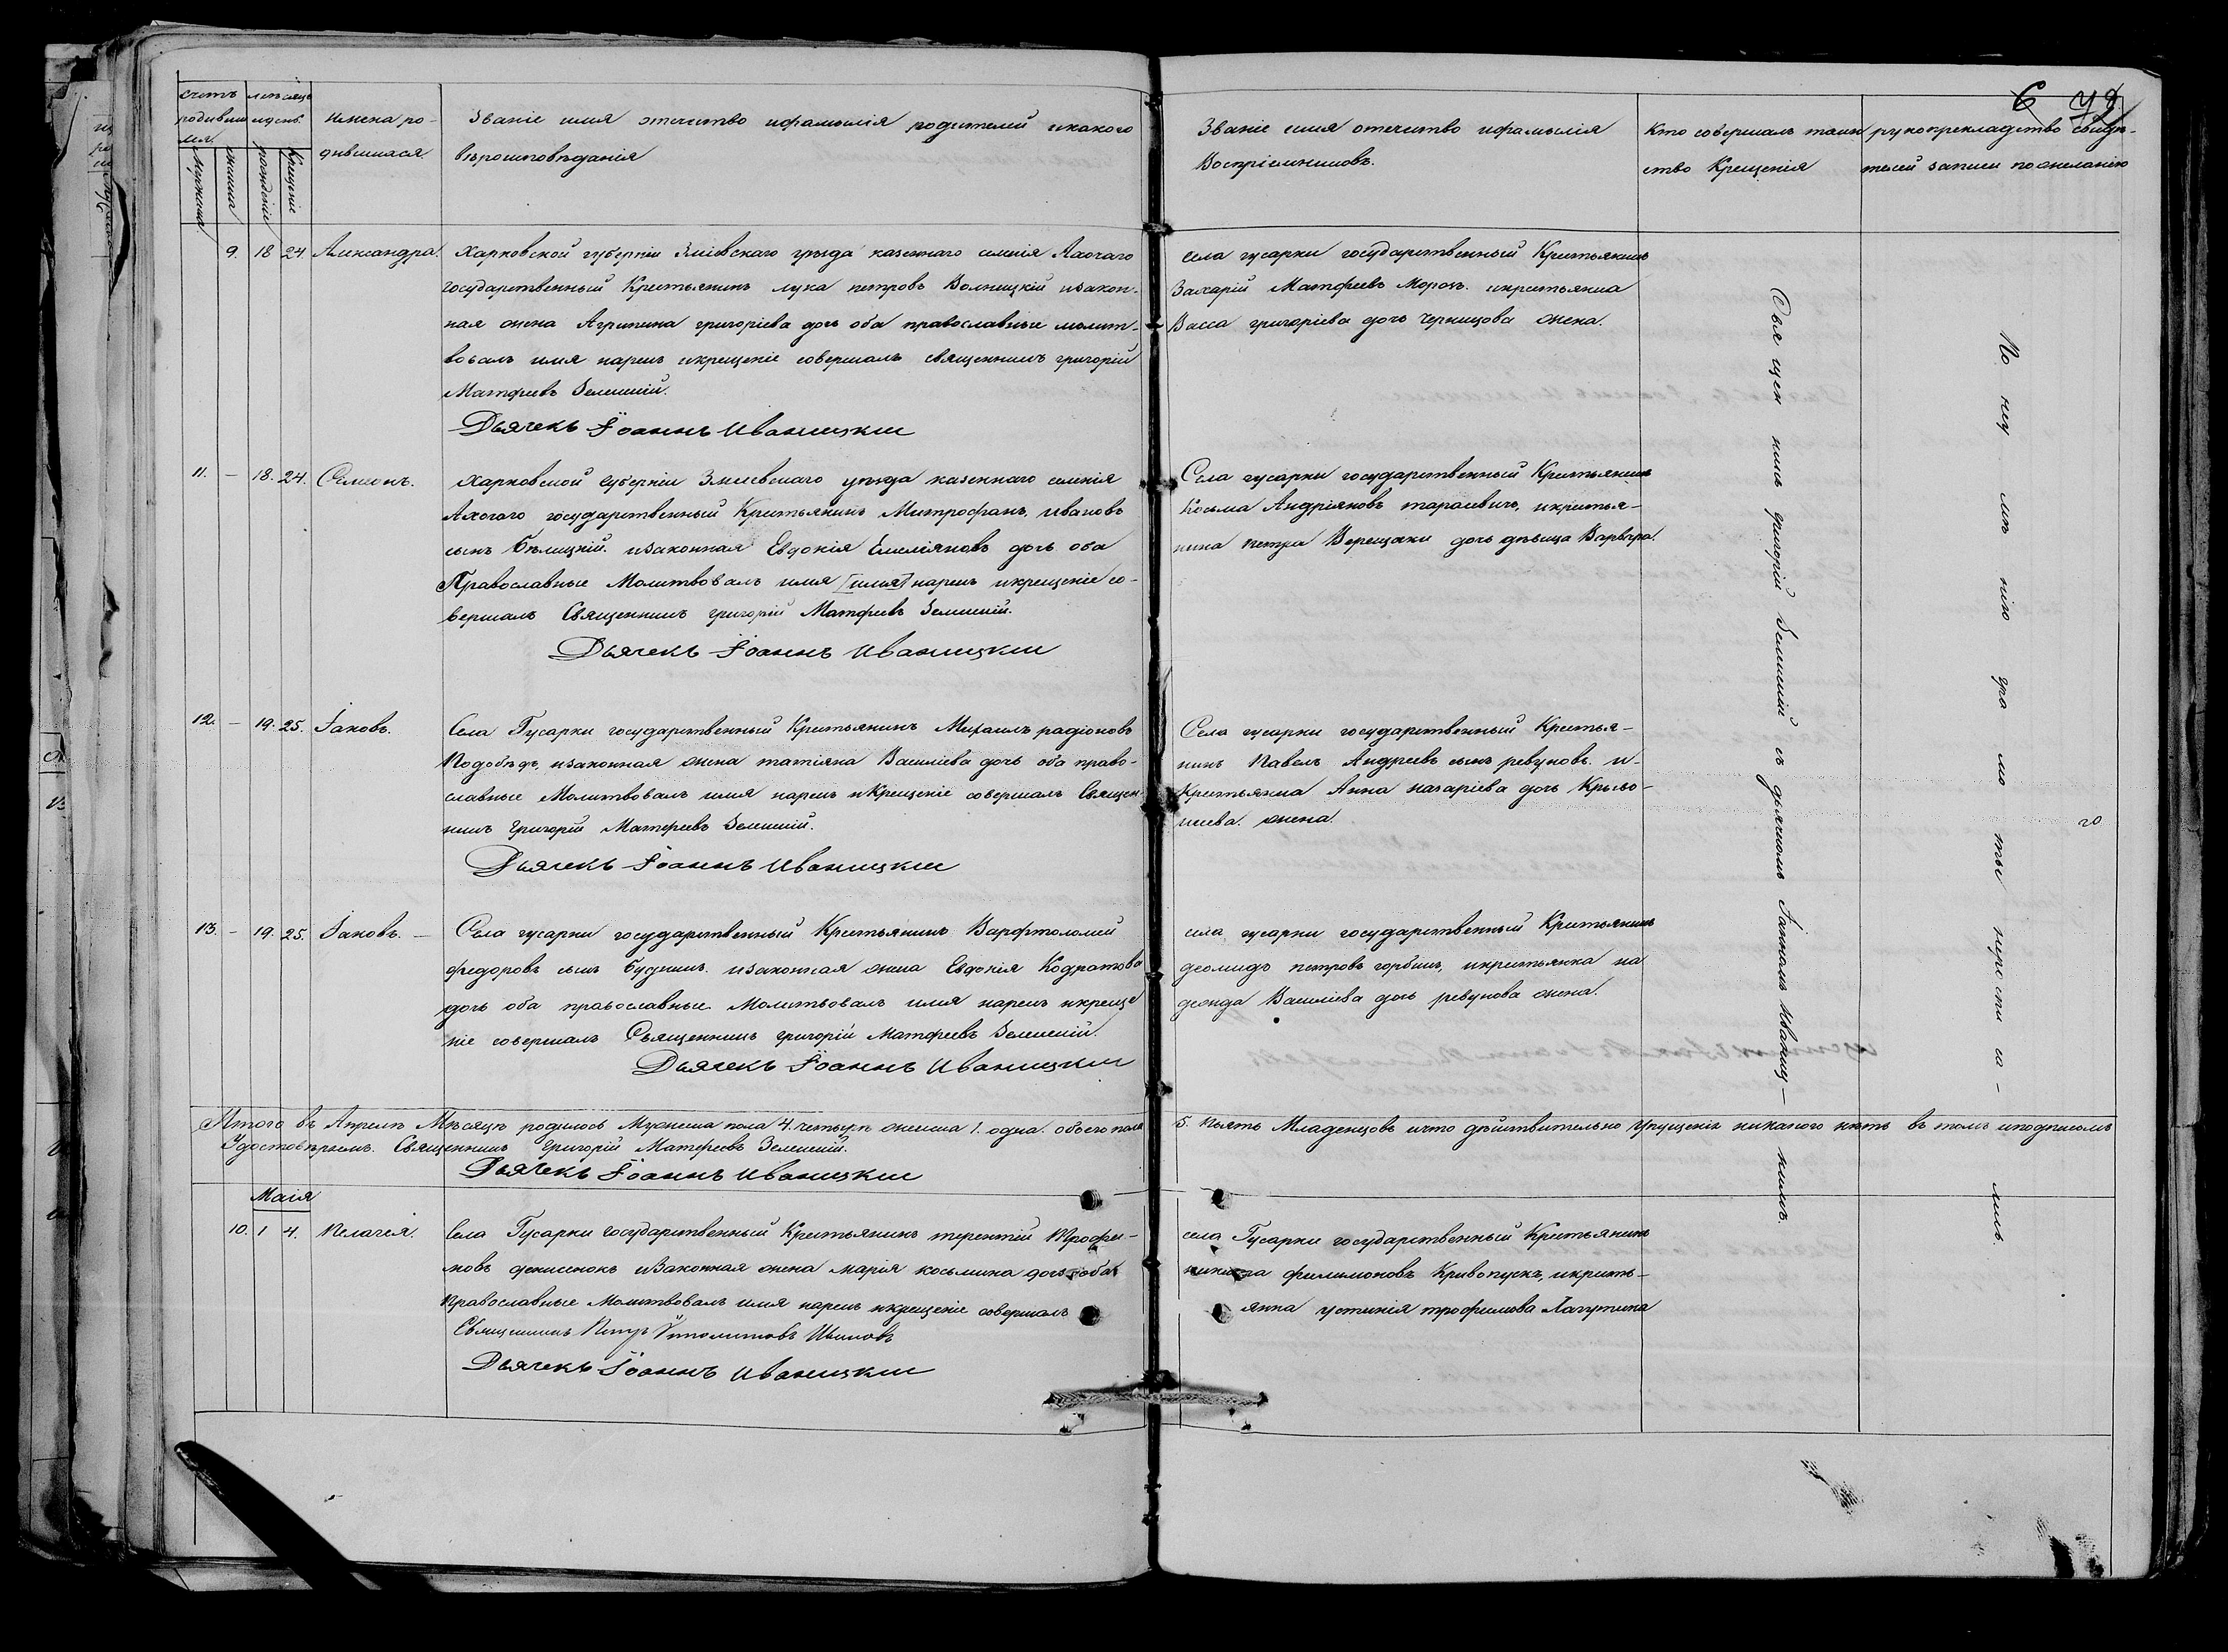 6
счетъ
родивших
ся.
мужеска.
женска
месяцъ
и день.
рожденіе
Крещеніе
Имена ро-
дившихся.
Званіе имя отечество ифамилія родителей икакого
вероисповеданія
Званіе имя отечество ифамилія
Воспріемниковъ.
Кто совершалъ таин
ство Крещенія
рукоприкладство свиде-
телей записи по желанію
9. 18 24. Александра.
Харковской губерніи Зміевскаго уезда казеннаго селенія Лахочаго
государственный Крестьянинъ лука петровъ Волницкій изакон-
ная жена Агрипина григоріева дочь оба православные молит-
вовалъ имя нарекъ икрещеніе совершалъ священникъ григорій
Матфеевъ Зеленскій.
Дьячекъ Іоаннъ Иваницкіи
села гусарки государственный Крестьянинъ
Захарій Матфеевъ Морозъ. икрестьянка
Васса григоріева дочь Чернцова жена.
11. – 18. 24. Семеонъ.
Харковской губерніи Змиевскаго уезда казеннаго селенія
Лхочаго государственный Крестьянинъ Митрофанъ, ивановъ
сынъ Белицкій. изаконная Евдокія Емеліяновъ дочь оба
Православные Молитвовалъ имя [имя] нарекъ икрещеніе со-
вершалъ Священникъ григорій Матфеевъ Зеленскій.
Дьячекъ Іоаннъ Иваницкіи
Села гусарки государственный Крестьянинъ
Косьма Андріяновъ тарасевичъ, икрестья-
нина петра Верещаки дочь девица Варвара.
12. – 19. 25. Іаковъ.
Села Гусарки государственный Крестьянинъ Михаилъ радіоновъ
Подобедъ, изаконная жена татіяна Василіева дочь оба право-
славные Молитвовалъ имя нарекъ иКрещеніе совершалъ Священ
никъ Григорій Матфеевъ Зеленскій.
Дьячекъ Іоаннъ Иваницкіи
Села гусарки государственный Крестья-
нинъ Павелъ Андреевъ сынъ ревуновъ. и-
Крестьянка Анна назаріева дочь
жена.
13. – 19. 25. Іаковъ. –
Села гусарки государственный Крестьянинъ Варфтоломей
федоровъ сынъ Будникъ. изаконная жена Евдокія Кодратова
дочь оба православные Молитвовалъ имя нарекъ икреще
ніе совершалъ Священникъ григорій Матфеевъ Зеленскій.
Дьячекъ Іоаннъ Иваницкіи
села гусарки государственный Крестьянинъ
деомидъ петровъ горбикъ, икрестьянка на
дежда Василіева дочь ревунова жена.
Итого въ Апреле Месяце родилось Мужеска пола 4. четыре женска 1. одна. обоего пола 5. пьять Младенцовъ ичто действительно упущенія никакого нетъ въ томъ иподписомъ
Удостоверяемъ. Священникъ Григорій Матфеевъ Зеленскій.
Дьячекъ Іоаннъ Иваницкіи
Маія
10. 1 4. Пелагея.
Села Гусарки государственный Крестьянинъ терентій Трофи-
мовъ денисенокъ изаконная жена марія косьмина дочь оба
Православные Молитвовалъ имя нарекъ икрещеніе совершалъ
Священникъ Петръ Ипполитовъ
Дьячекъ Іоаннъ Иваницкіи
села Гусарки государственный Крестьянинъ
никита филимоновъ Кривопускъ, икресть-
янка устинія трофимова Лагутина
Священникъ григорій Зеленскій съ дьячкомъ Іанномъ Иваниц-
кимъ.
По неуменію грамоте неросписа-
лись.